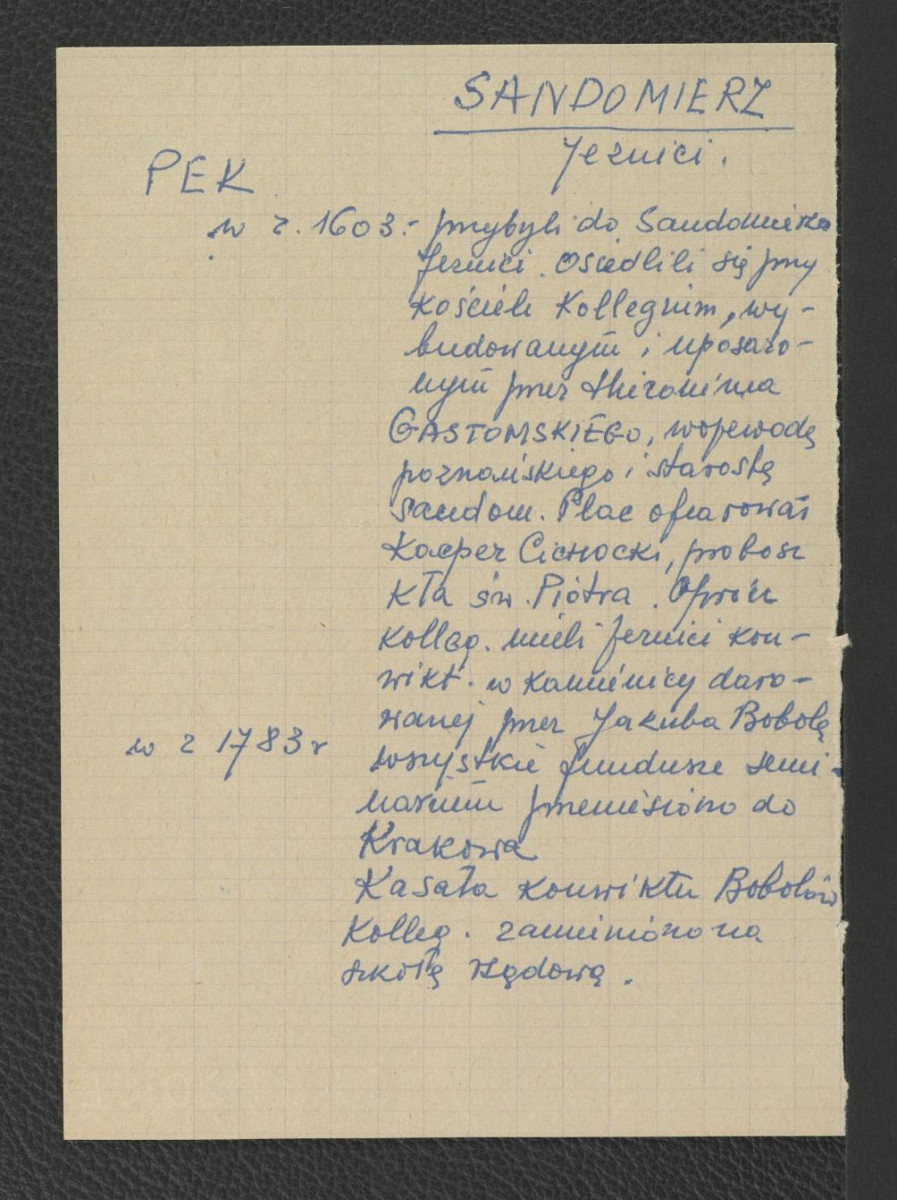 SANDOMIERZ
Jezuici.
PEK
w r. 1603.- przybyli do Sandomierza
Jezuici. Osiedlili się przy
kościele Kollegium, wy-
budowanym i uposażo-
nym przez Hieronima
GASTOMSKIEGO, wojewodę
poznańskiego i starostę
Sandom. Plac ofiarował
Kacper Cichocki, probosz
kła św. Piotra. Oprócz
kolleg. mieli Jezuici kon-
wikt. w kamienicy daro-
wanej przez Jakuba Bobolę
w r 1783 r wszystkie fundusze semi-
narium przeniesiono do
Krakowa
Kasata konwiktu Bobolów
Kolleg. zamieniono na
szkołę rządową.